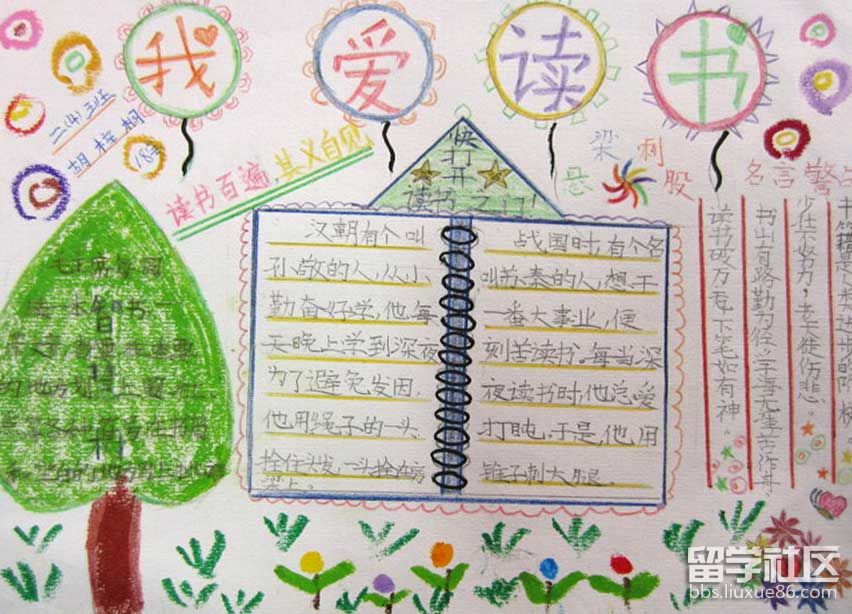 我爱读书
二(4)班
胡梓桐
18号
读书百遍,其义自见
快打开
读书之门!
悬梁刺股
汉朝有个叫
孙敬的人,从小
勤奋好学,他每
天晚上学到深夜
为了避免发困.
他用绳子的一头
拴住头发,一头拴在房
梁上。
战国时,有个名
叫苏秦的人,想干
一番大事业,便
刻苦读书。每当深
夜读书时,他总爱
打盹,于是,他用
锥子刺大腿。
名言警
读书破万卷下笔如有神。
书山有路勤为径学海无涯苦作舟
少壮不努力,老大徒伤悲。
书籍是人类进步的阶梯。
留学社区
bbs.liuxue86.com